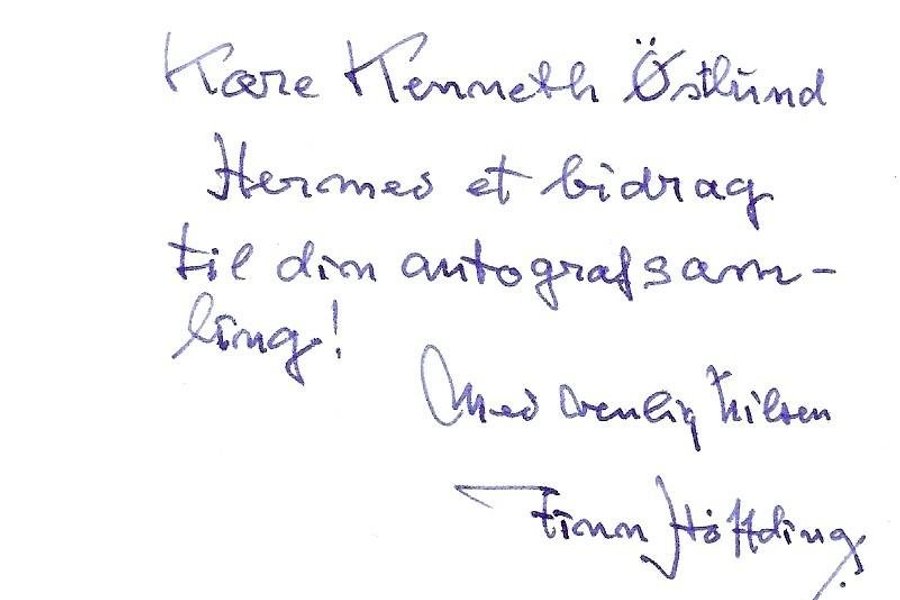 Kære Kenneth Östlund
Hermed et bidrag
til din autografsam-
ling!
Med venlig hilsen
Finn Höffding